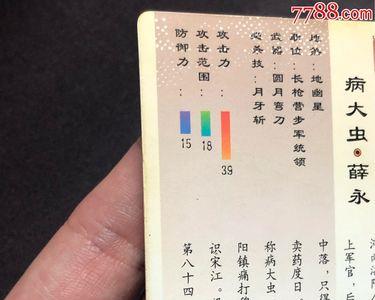 7788.com
病大虫·薛永
地煞：地幽星
职位：长枪营步军统领
武器：圆月弯刀
必杀技：月牙斩
攻击力：
39
攻击范围：
18
防御力：
15
上军官，后
中落，只得
卖药度日，
称病大虫
阳镇痛打
识宋江。
第八十四